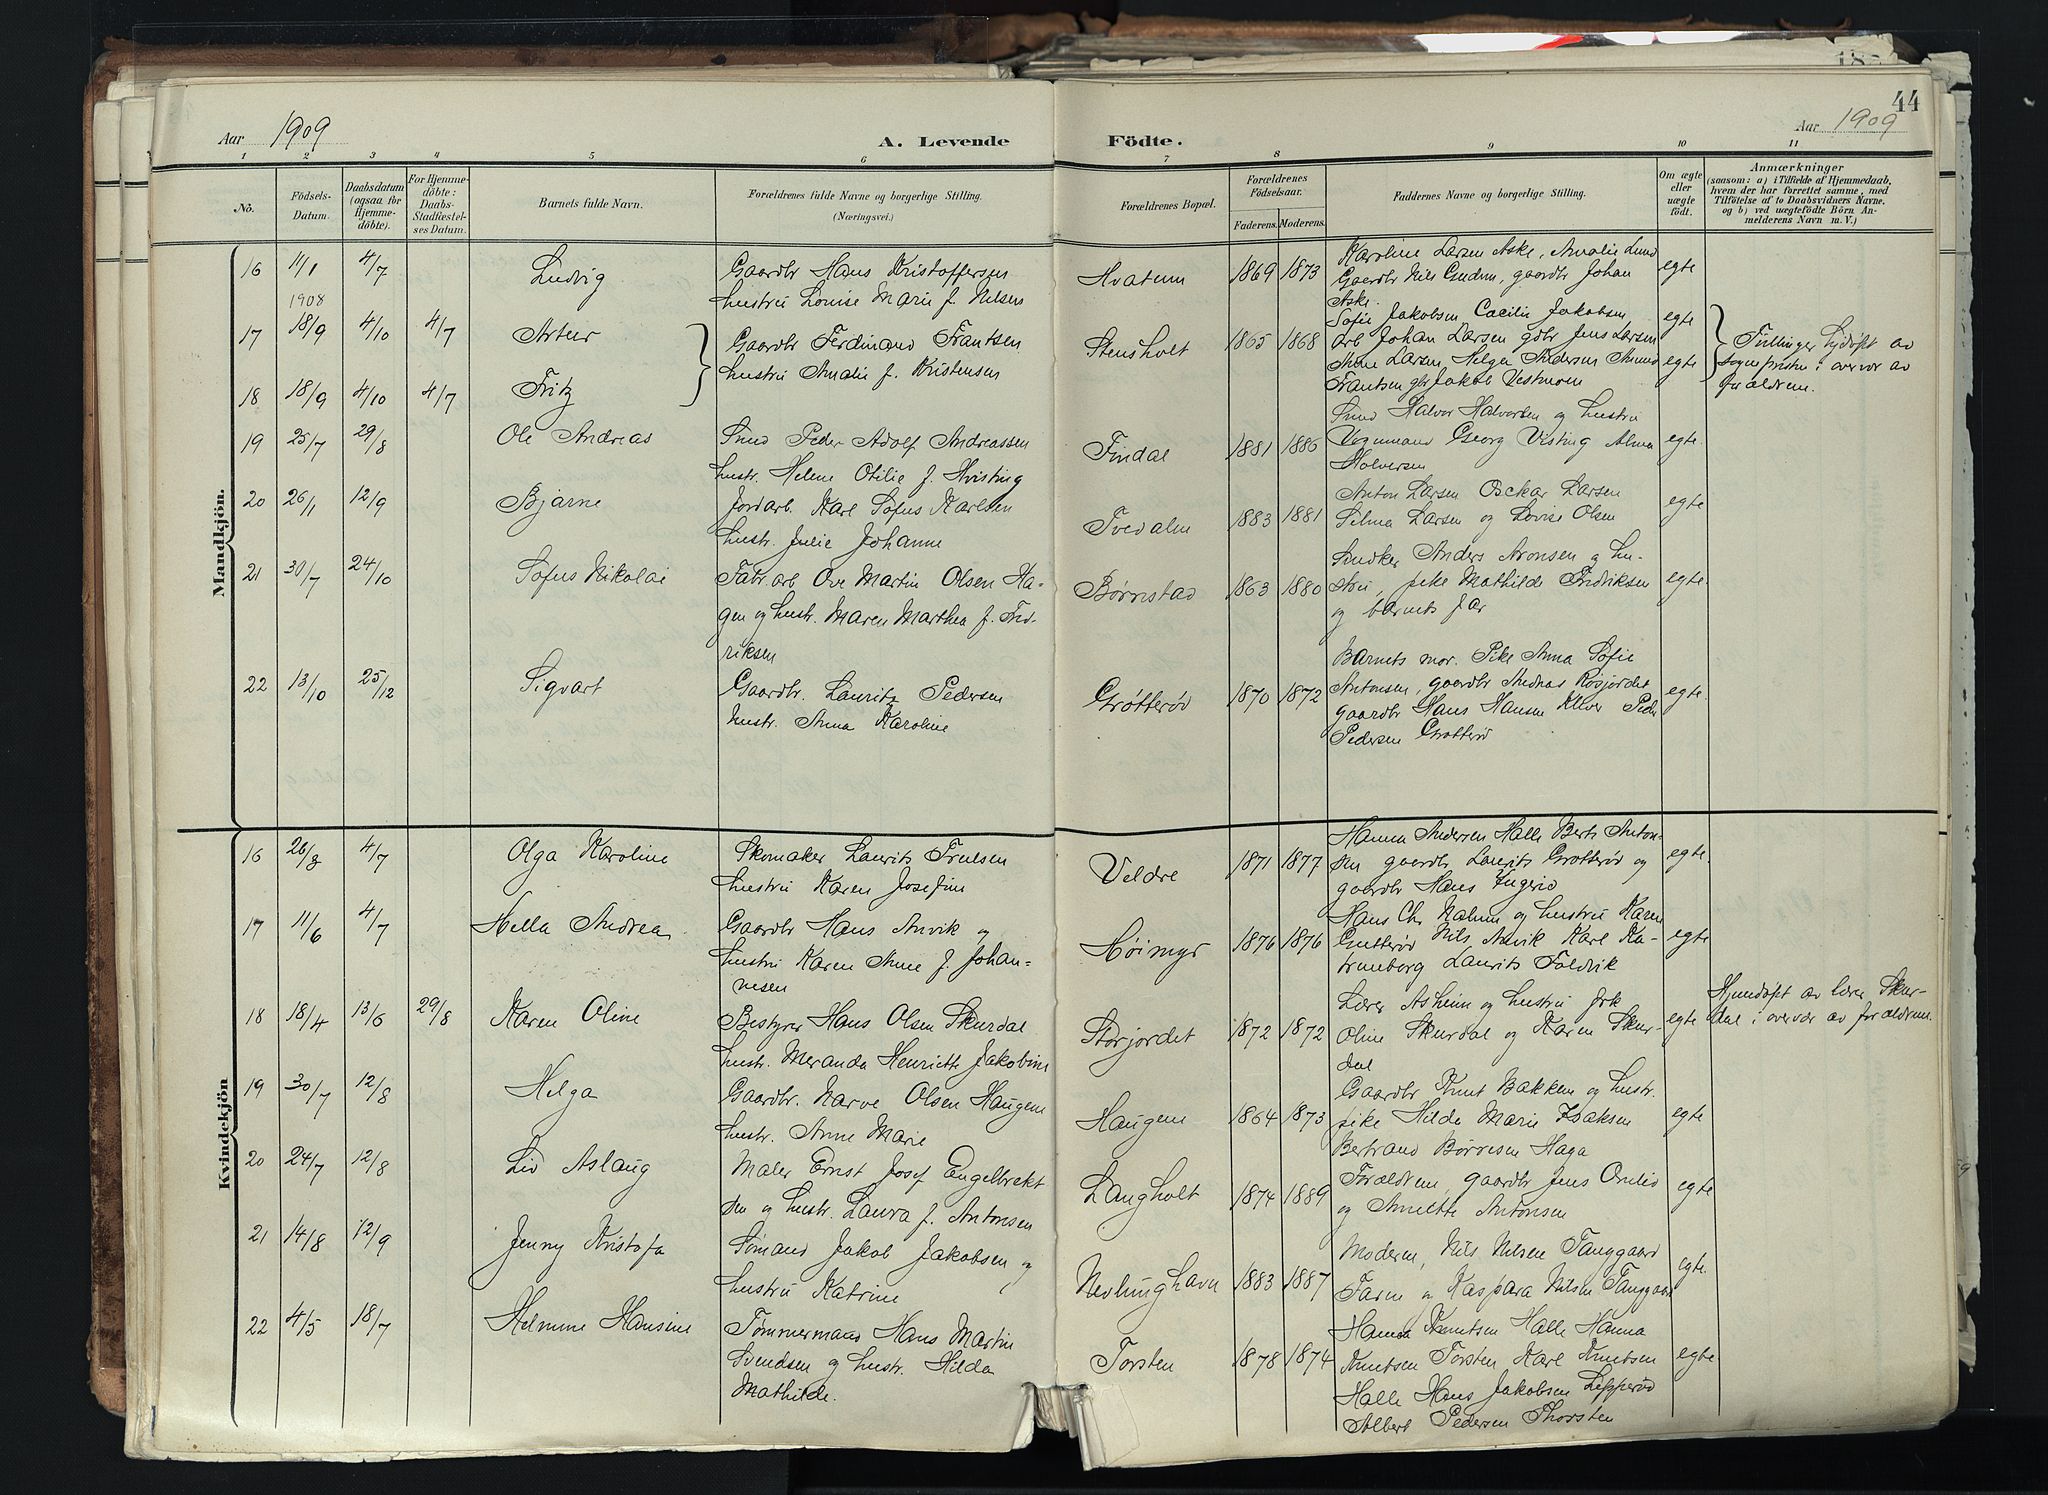 44
Aar 1909
A. Levende
Födte.
Aar 1909
1 2 3 4 5 6 7 8 9 10 11
No.
Födsels-Datum.
Daabsdatum (ogsaa for Hjemme-döbte).
For Hjemme-döbte: Daabs-Stadfæstel-ses Datum.
Barnets fulde Navn.
Forældrenes fulde Navne og borgerlige Stilling. (Næringsvei.)
Forældrenes Bopæl.
Forældrenes Födselsaar.
Faderens. Moderens.
Faddernes Navne og borgerlige Stilling.
Om ægte eller uægte födt.
Anmærkninger
(saasom: a) i Tilfælde af Hjemmedaab,
hvem der har forrettet samme, med
Tilföielse af to Daabsvidners Navne,
og b) ved uægtefödte Börn An-
melderens Navn m. V.)
Mandkjön.
16 11/1 4/7 Ludvig
Gaardbr Hans Kristoffersen
hustru Louise Marie f. Nilsen
Hvatum 1869 1873
Karoline Larsen Aske, Amalie Lund
Gaardbr Nils Gudm, gaardbr Johan
Aske.
egte
1908
17 18/9 4/10 4/7 Artur
Gaardbr Ferdinand Frantsen
hustru Amalie f. Kristensen
Stensholt 1865 1868
Sofie Jakobsen Cacilie Jakobsen
arb Johan Larsen gdbr Jens Larsen
Anne Larsen Helga Andersen
Frantsen gbr Jakob Vestmoen
egte
egte
Tvillinger hjdøpt av
sogneprsten i overvær av
forældrene.
18 18/9 4/10 4/7 Fritz
19 25/7 29/8 Ole Andreas
Smed Peder Adolf Andreassen
hustr. Helene Otilie f. Hvisting
Findal 1881 1886
Smed Halvor Halvorsen og hustru
Vognmand Georg Visting Alma
Halversen
egte
20 26/1 12/9 Bjarne
Jordarb. Karl Sofus Karlsen
hustr. Julie Johanne
Tvedalen 1883 1881
Anton Larsen Osckar Larsen
Selma Larsen og Lovise Olsen
egte
21 30/7 24/10 Sofus Nikolai
Fabr.arb Ove Martin Olsen Ha-
gen og hustr. Maren Marthea f. Fred-
riksen
Børnstad 1863 1880
Snedker Anders Aronsen og hu-
stru, pike Mathilde Fredriksen
og barnets far
egte
22 13/10 25/12 Sigvart
Gaardbr. Lauritz Pedersen
hustr. Anna Karoline
Grøtterød 1870 1872
Barnets mor. Pike Anna Sofie
Antonsen, gaardbr Andreas Røsjordet
gaardbr Hans Hansen Klever Peder
Pedersen Grøtterød
egte
Kvindekjön
16 26/3 4/7 Olga Karoline
Skomaker Laurits Trulsen
hustru Karen Josefine
Veldre 1871 1877
Hanna Andersen Halle Berts Anton-
sen gaardbr Laurits Grøtterød og
gaardbr Hans
egte
17 11/6 4/7 Hella Andrea
Gaardbr Hans Anvik og
hustru Karen Anne f. Johan-
nesen
Høimyr 1876 1876
Hans Chr Nalum og hustru Karen
Nils Anvik Karl Ka-
Laurits Foldvik
egte
18 18/4 13/6 29/8 Karen Oline
Bestyrer Hans Olsen Skurdal
hustr. Meranda Henriette Jakobine
Storjordet 1872 1872
Lærer Asheim og hustru frk
Oline Skurdal og Karen Skur-
dal
egte
Hjemdøpt av lærer Skur-
dal i overvær av forældrene.
19 30/7 12/8 Helga
Gaardbr. Narve Olsen Haugene
hustr. Anne Marie
Haugene 1864 1873
Gaardbr Knut Bakken og hustr.
pike Hilda Marie Isaksen
Bertrand Børresen Haga
egte
20 24/7 12/8 Liv Aslaug
Maler Ernst Josef Engelbrekt
sen og hustr. Laura f. Antonsen
Langholt 1874 1889
Forældrene, gaardbr Jens Omlid
og Anette Antonsen
egte
21 14/8 12/9 Jenny Kristofa
Sømand Jakob Jakobsen og
hustru Katrine
Nevlunghavn 1883 1887
Moderen, Nils Nilsen Tanggaard
Faren og Kaspara Nilsen Tanggaard
egte.
22 4/5 18/7 Helmine Hansine
Tømmermand Hans Martin
Svendsen og hustr. Hilda
Mathilde.
Torsten 1878 1874
Hanna Knutsen Halle Hanna
Knutsen Torsten Karl Knutsen
Halle Hans Jakobsen Lepperød
Albert Pedersen Thorsten
egte